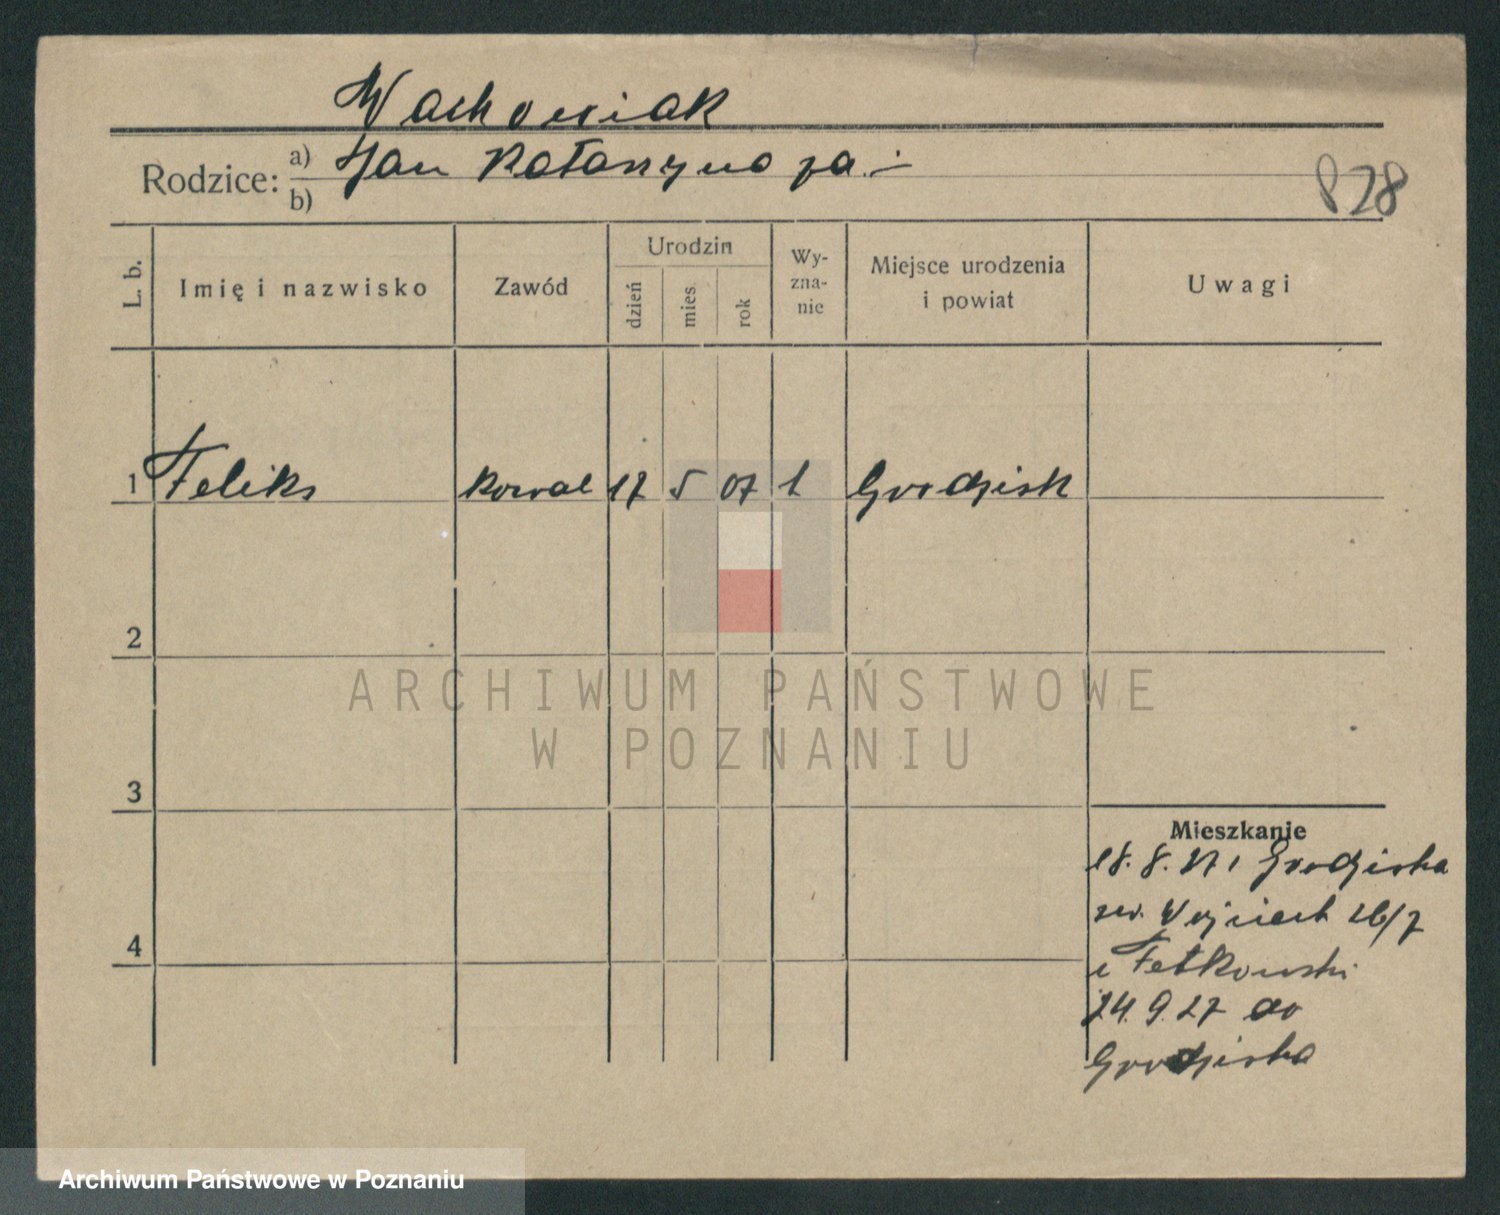 Wachowiak
Rodzice: a) Jan Katarzyna za. —
b)
828
L. b. Imię i nazwisko Zawód Urodzin dzień mies. rok Wy-zna-nie Miejsce urodzenia i powiat Uwagi
1 Feliks kowal 17 5 07 k Grodzisk
2
3
4
Mieszkanie
18. 8. 27 z Grodziska
św. Wojciech 26/7
u Fetkowski
24. 9. 27 do
Grodziska
ARCHIWUM PAŃSTWOWE
W POZNANIU
Archiwum Państwowe w Poznaniu